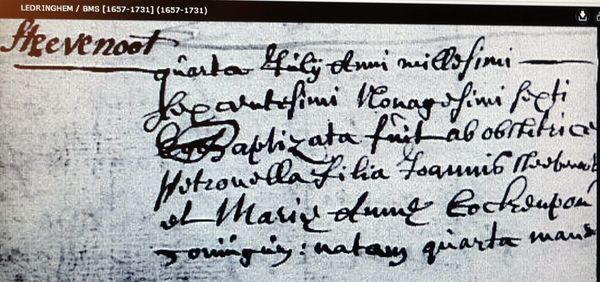 LEDRINGHEM / BMS [1657-1731] (1657-1731)
Steevenoot
quarta July Anni millesimi
sexcentesimi Nonagesimi sexti
Baptizata fuit ab obstetrice
Petronella filia Joannis Steevenoot
et Mariæ Annæ
coniugum: natam quarta